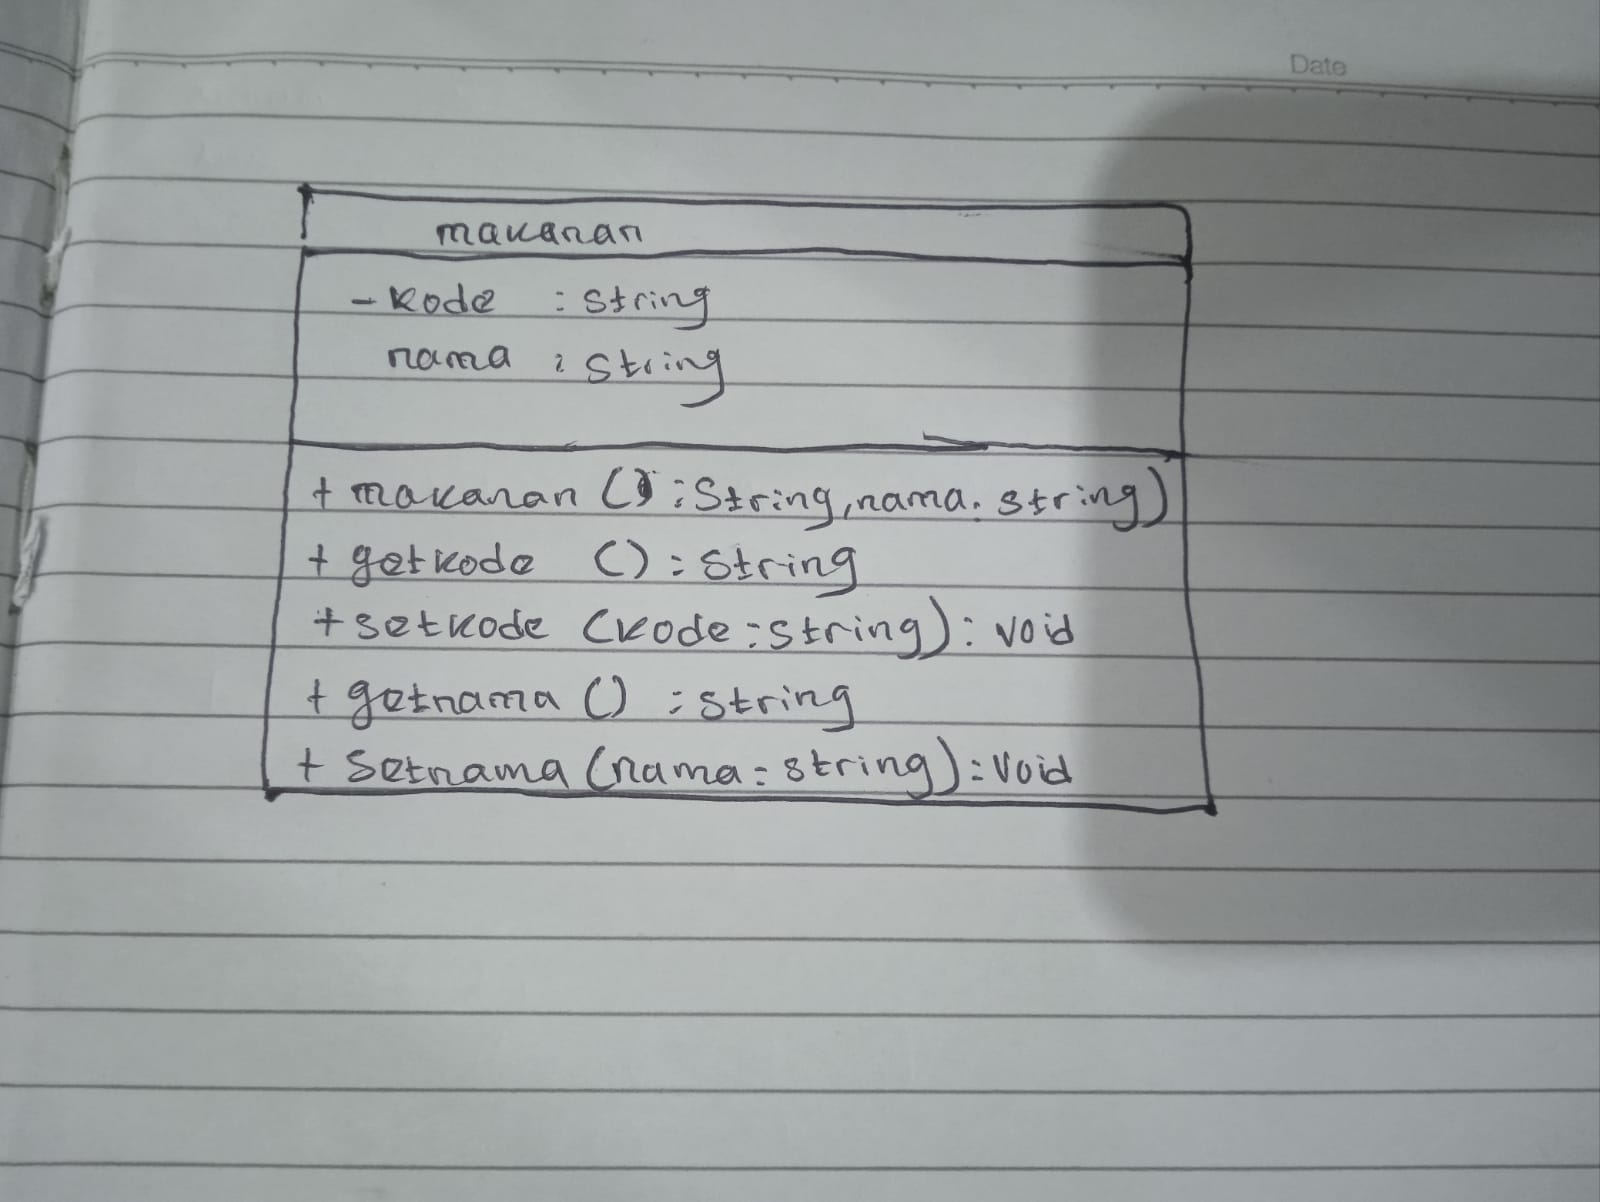 Date
makanan
- kode : string
nama : string
+ makanan () : String, nama. string)
+ getkode () : string
+ setkode (kode : string) : void
+ getnama () : string
+ setnama (nama = string) : void